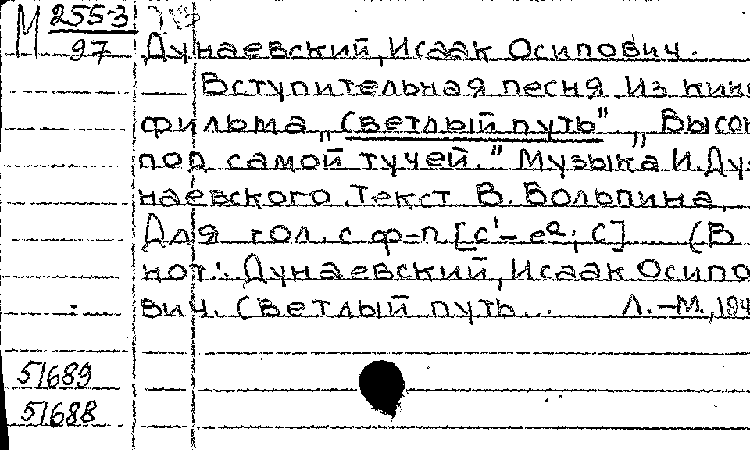 М 2553
97
Дунаевский, Исаак Осипович.
Вступительная песня из кин
фильма „Светлый путь" „Высок
под самой тучей." Музыка И. Ду
наевского. Текст В. Волпина.
Для гол. с ф-п [c¹- e²; C] (В
нот.: Дунаевский, Исаак Осипо
вич. Светлый путь... Л.-М., 194
51689
51688